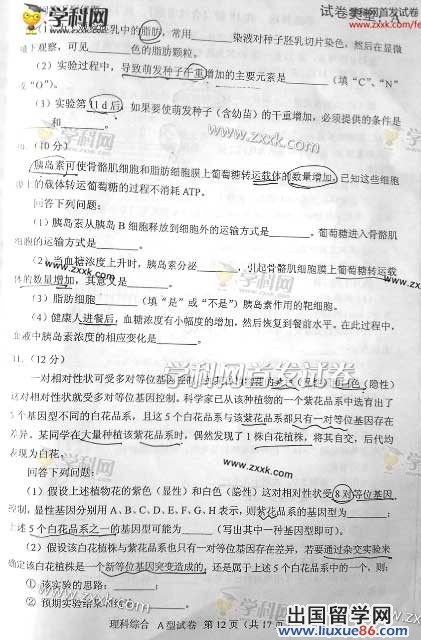 试卷类型：A
胚乳中的脂肪，常用______染液对种子胚乳切片染色，然后在显微
镜下观察，可见______色的脂肪颗粒。
(2) 实验过程中，导致萌发种子干重增加的主要元素是______（填“C”、“N”
或“O”）。
(3) 实验第11 d后，如果要使萌发种子（含幼苗）的干重增加，必须提供的条件是
______和______。
(10分)
胰岛素可使骨骼肌细胞和脂肪细胞膜上葡萄糖转运载体的数量增加，已知这些细胞
上的载体转运葡萄糖的过程不消耗 ATP。
回答下列问题：
(1) 胰岛素从胰岛 B 细胞释放到细胞外的运输方式是______，葡萄糖进入骨骼肌
细胞的运输方式是______。
(2) 当血糖浓度上升时，胰岛素分泌______，引起骨骼肌细胞膜上葡萄糖转运载
体的数量增加，其意义是______。
(3) 脂肪细胞______（填“是”或“不是”）胰岛素作用的靶细胞。
(4) 健康人进餐后，血糖浓度有小幅度的增加，然后恢复到餐前水平。在此过程中，
血液中胰岛素浓度的相应变化是______。
31.（12分）
一对相对性状可受多对等位基因控制，（显性）和白色（隐性）
这对相对性状就受多对等位基因控制。科学家已从该种植物的一个紫花品系中选育出了
5 个基因型不同的白花品系，且这 5 个白花品系与该紫花品系都只有一对等位基因存在
差异。某同学在大量种植该紫花品系时，偶然发现了 1 株白花植株，将其自交，后代均
表现为白花。
回答下列问题：
(1) 假设上述植物花的紫色（显性）和白色（隐性）这对相对性状受 8 对等位基因
控制，显性基因分别用 A、B、C、D、E、F、G、H 表示，则紫花品系的基因型为______；
上述 5 个白花品系之一的基因型可能为______（写出其中一种基因型即可）。
(2) 假设该白花植株与紫花品系也只有一对等位基因存在差异，若要通过杂交实验来
确定该白花植株是一个新等位基因突变造成的，还是属于上述 5 个白花品系中的一个，则：
① 该实验的思路：______；
② 预期实验结果
理科综合 A型试卷 第12页（共17页）
学科网首发试卷
www.zxxk.com
学科网
www.zxxk.com
出国留学网
www.liuxue86.com